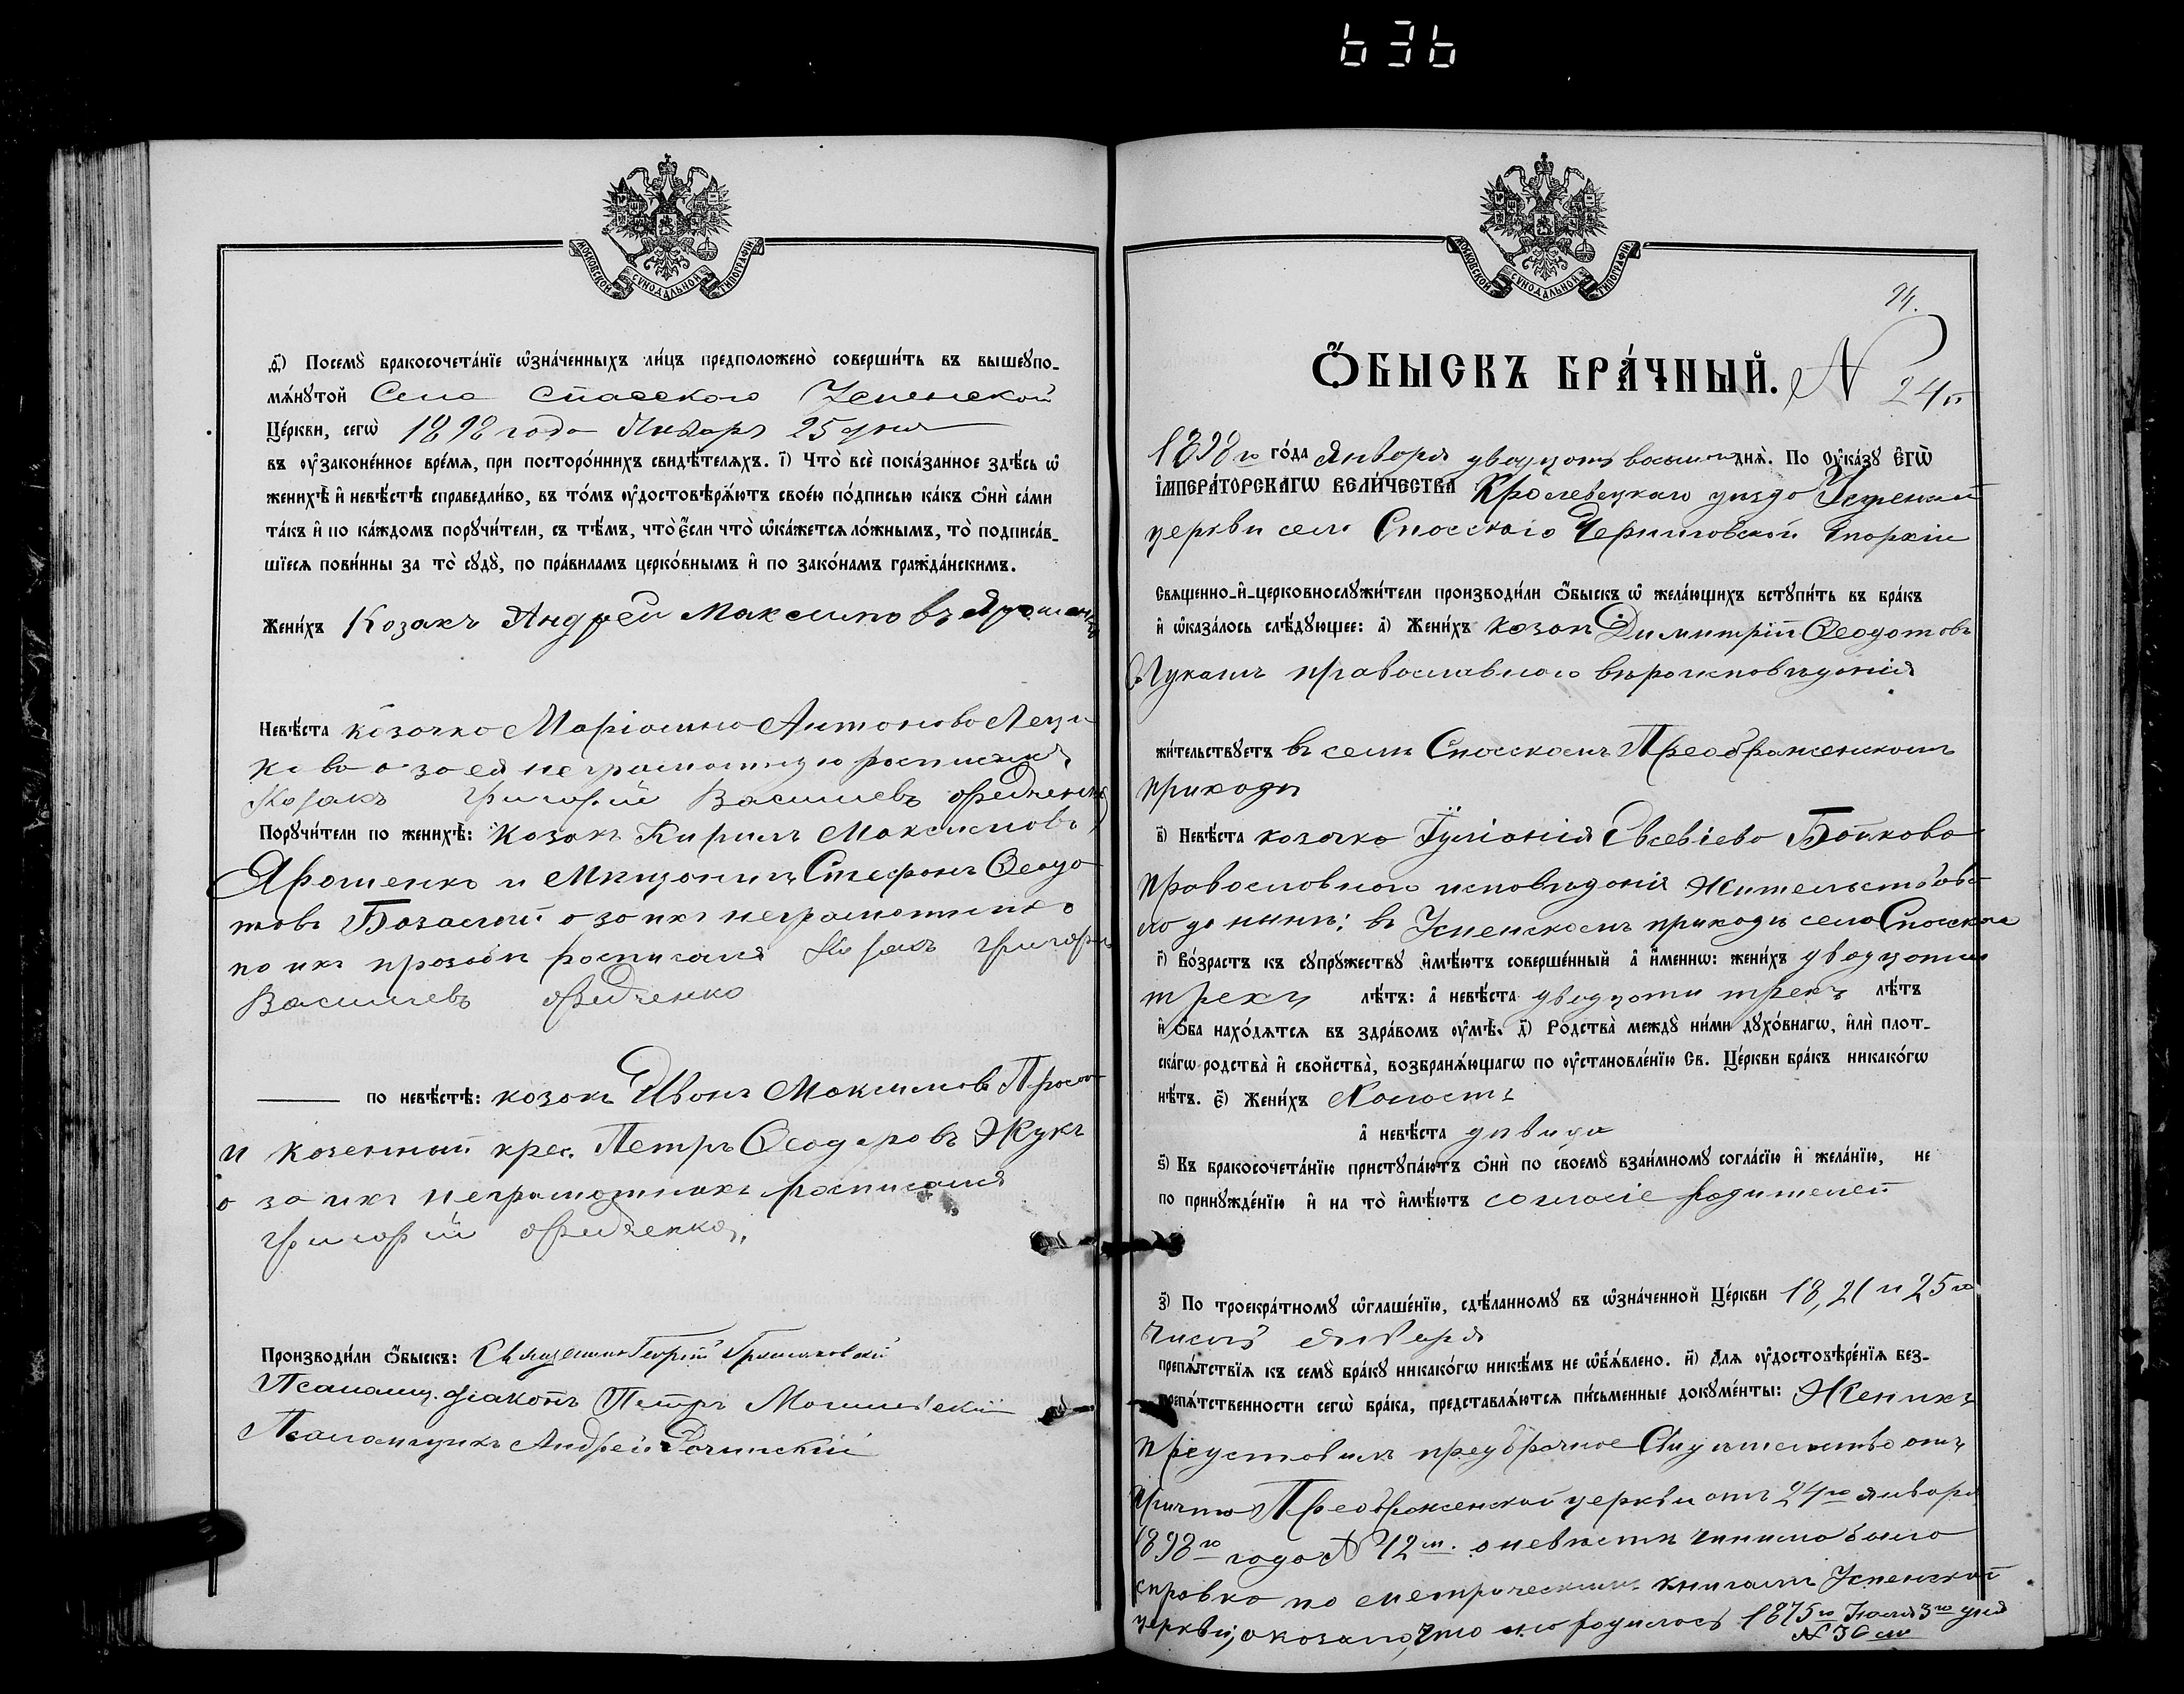 636
МОСКОВСКОЙ СѴНОДАЛЬНОЙ ТИПОГРАФІИ
д҃) Посемꙋ̀ бракосочета́нїе ѡ҆зна́ченныхъ ли́цъ предположено̀ соверши́ть въ вышеꙋпо-
мѧ́нꙋтой Села Спасскаго Успенской
Це́ркви, сегѡ̀ 1898 года Января 25 дня
въ ᲂу҆законе́нное вре́мѧ, при посторо́ннихъ свидѣ́телѧхъ. і҃) Что̀ всѐ пока́занное здѣ́сь ѡ҆
женихѣ̀ и҆ невѣ́стѣ справедли́во, въ то́мъ ᲂу҆достовѣрѧ́ютъ свое́ю по́дписью ка́къ ѻ҆нѝ са́ми
та́къ и҆ по ка́ждомъ порꙋчи́тели, съ тѣ́мъ, что̀ є҆́сли что̀ ѡ҆ка́жетсѧ ло́жнымъ, то̀ подписа́в-
шїесѧ пови́нны за то̀ сꙋдꙋ̀, по пра́виламъ церко́внымъ и҆ по зако́намъ гражда́нскимъ.
Жени́хъ Козакъ Андрей Максимовъ Ярошенко
Невѣ́ста козачка Маріамна Антонова Леци-
кова а за ея неграмотную росписался
Козакъ Григорій Васильевъ Федченко
Порꙋчи́тели по женихѣ̀: Козакъ Кирилъ Максимовъ
Ярошенко и Мещанинъ Стефанъ Ѳеодо-
товъ а за ихъ неграмотныхъ
по ихъ прозбѣ росписался Козакъ Григорій
Васильевъ Федченко
по невѣ́стѣ: козакъ Иванъ Максимовъ
и казенный крес. Петръ Ѳеодоровъ Жукъ
а за ихъ неграмотныхъ росписался
Григорій Федченко.
Производи́ли ѻ҆́быскъ: Священникъ Георгій
Псаломщ. діаконъ Петръ
Псаломщикъ Андрей Рачинскій
МОСКОВСКОЙ СѴНОДАЛЬНОЙ ТИПОГРАФІИ
24.
Ѻ҆́БЫСКЪ БРА́ЧНЫЙ. № 24й
1898го го́да Января двадцать восьмого днѧ̀. По ᲂу҆ка́зꙋ є҆гѡ̀
і҆мпера́торскагѡ вели́чества Кролевецкаго уезда Успенской
церкви села Спасскаго Черниговской Епархіи
Свѧщенно-и҆-церковнослꙋжи́тели производи́ли ѻ҆́быскъ ѡ҆ жела́ющихъ встꙋпи́ть въ бра́къ
и҆ ѡ҆каза́лось слѣ́дꙋющее: а҃) Жени́хъ козакъ Димитрій Ѳеодотовъ
православного вероисповеданія
жи́тельствꙋетъ въ селе Спасскомъ Преображенскомъ
приходе
в҃) Невѣ́ста козачка Іуліанія Евсевіева Бойкова
православного исповеданія жительствова-
ла до ныне: въ Успенскомъ приходе села Спасскаго
г҃) Во́зрастъ къ сꙋпрꙋ́жествꙋ и҆мѣ́ютъ соверше́нный а҆ и҆́меннѡ: жени́хъ двадцати
трехъ лѣ́тъ: а҆ невѣ́ста двадцати трехъ лѣ́тъ
и҆ ѻ҆́ба нахо́дѧтсѧ въ здра́вомъ ᲂу҆мѣ̀. д҃) Родства̀ междꙋ̀ ни́ми дꙋхо́внагѡ, и҆лѝ плот-
ска́гѡ родства̀ и҆ сво́йства̀, возбранѧ́ющагѡ по ᲂу҆становле́нїю Св. Це́ркви бра́къ никако́гѡ
нѣ́тъ. є҃) Жени́хъ Холостъ
а҆ невѣ́ста девица
ѕ҃) Къ бракосочета́нїю пристꙋпа́ютъ ѻ҆нѝ по своемꙋ̀ взаи́мномꙋ согла́сїю и҆ жела́нїю, не
по принꙋжде́нїю и҆ на то̀ и҆мѣ́ютъ согласіе родителей
з҃) По троекра́тномꙋ ѡ҆глаше́нїю, сдѣ́ланномꙋ въ ѡ҆зна́ченной Це́ркви 18, 21 и 25го
числъ января
препѧ́тствїѧ къ семꙋ̀ бра́кꙋ никако́гѡ никѣ́мъ не ѡ҆б̾ѧ́влено. и҃) Длѧ ᲂу҆достовѣре́нїѧ без-
препѧ́тственности сегѡ̀ бра́ка, представлѧ́ютсѧ пи́сьменные докꙋме́нты: Женихъ
представилъ предбрачное Свидетельство отъ
причта Преображенской церкви отъ 24го января
1898го года № 12м. о невесте чинима была
справка по метрическимъ книгамъ Успенской
церкви, оказало, что она родилась 1875го Іюля 3го дня
№ 36м